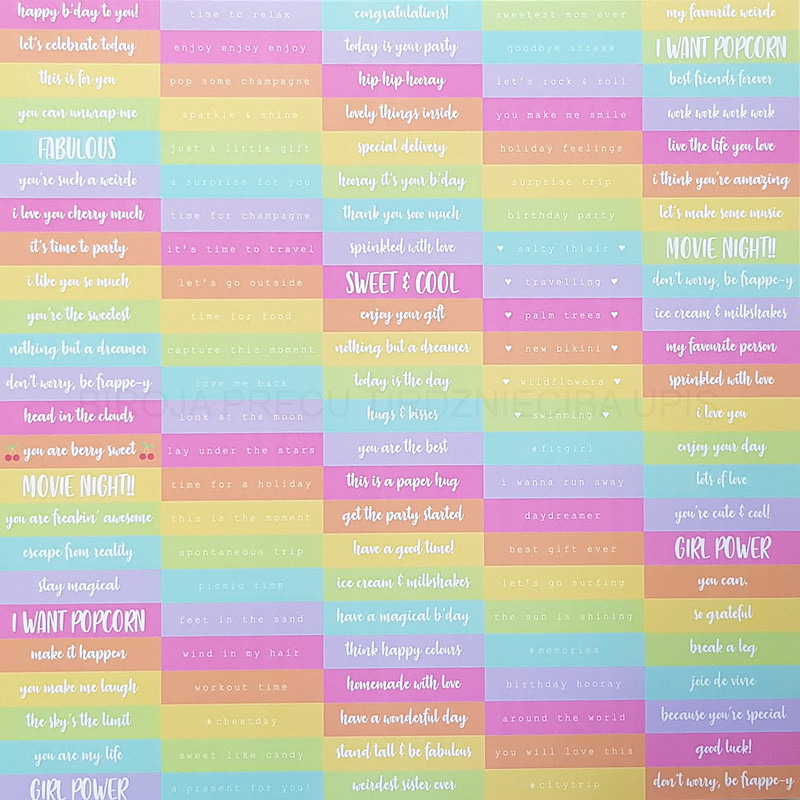 happy b'day to you!
let's celebrate today
this is for you
you can unwrap me
FABULOUS
you're such a weirdo
i love you cherry much
it's time to party
i like you so much
you're the sweetest
nothing but a dreamer
don't worry, be frappe-y
head in the clouds
you are berry sweet
MOVIE NIGHT!!
you are freakin' awesome
escape from reality
stay magical
I WANT POPCORN
make it happen
you make me laugh
the sky's the limit
you are my life
GIRL POWER
time to relax
enjoy enjoy enjoy
pop some champagne
sparkle & shine
just a little gift
a surprise for you
time for champagne
it's time to travel
let's go outside
time for food
capture this moment
love me back
look at the moon
lay under the stars
time for a holiday
this is the moment
spontaneous trip
picnic time
feet in the sand
wind in my hair
workout time
#cheatday
sweet like candy
a present for you!
congratulations!
today is your party
hip-hip-hooray
lovely things inside
special delivery
hooray it's your b'day
thank you sooo much
sprinkled with love
SWEET & COOL
enjoy your gift
nothing but a dreamer
today is the day
hugs & kisses
you are the best
this is a paper hug
get the party started
have a good time!
ice cream & milkshakes
have a magical b'day
think happy colours
homemade with love
have a wonderful day
stand tall & be fabulous
weirdest sister ever
sweetest mom ever
goodbye stress
let's rock & roll
you make me smile
holiday feelings
surprise trip
birthday party
♥ salty (h)air ♥
♥ travelling ♥
♥ palm trees ♥
♥ new bikini ♥
♥ wildflowers ♥
♥ swimming ♥
#fitgirl
i wanna run away
daydreamer
best gift ever
let's go surfing
the sun is shining
#memories
birthday hooray
around the world
you will love this
#citytrip
my favourite weirdo
I WANT POPCORN
best friends forever
work work work work
live the life you love
i think you're amazing
let's make some music
MOVIE NIGHT!!
don't worry, be frappe-y
ice cream & milkshakes
my favourite person
sprinkled with love
i love you
enjoy your day
lots of love
you're cute & cool!
GIRL POWER
you can.
so grateful
break a leg
joie de vivre
because you're special
good luck!
don't worry, be frappe-y
BIROJA PREČU TIRDZNIECĪBA UPIS